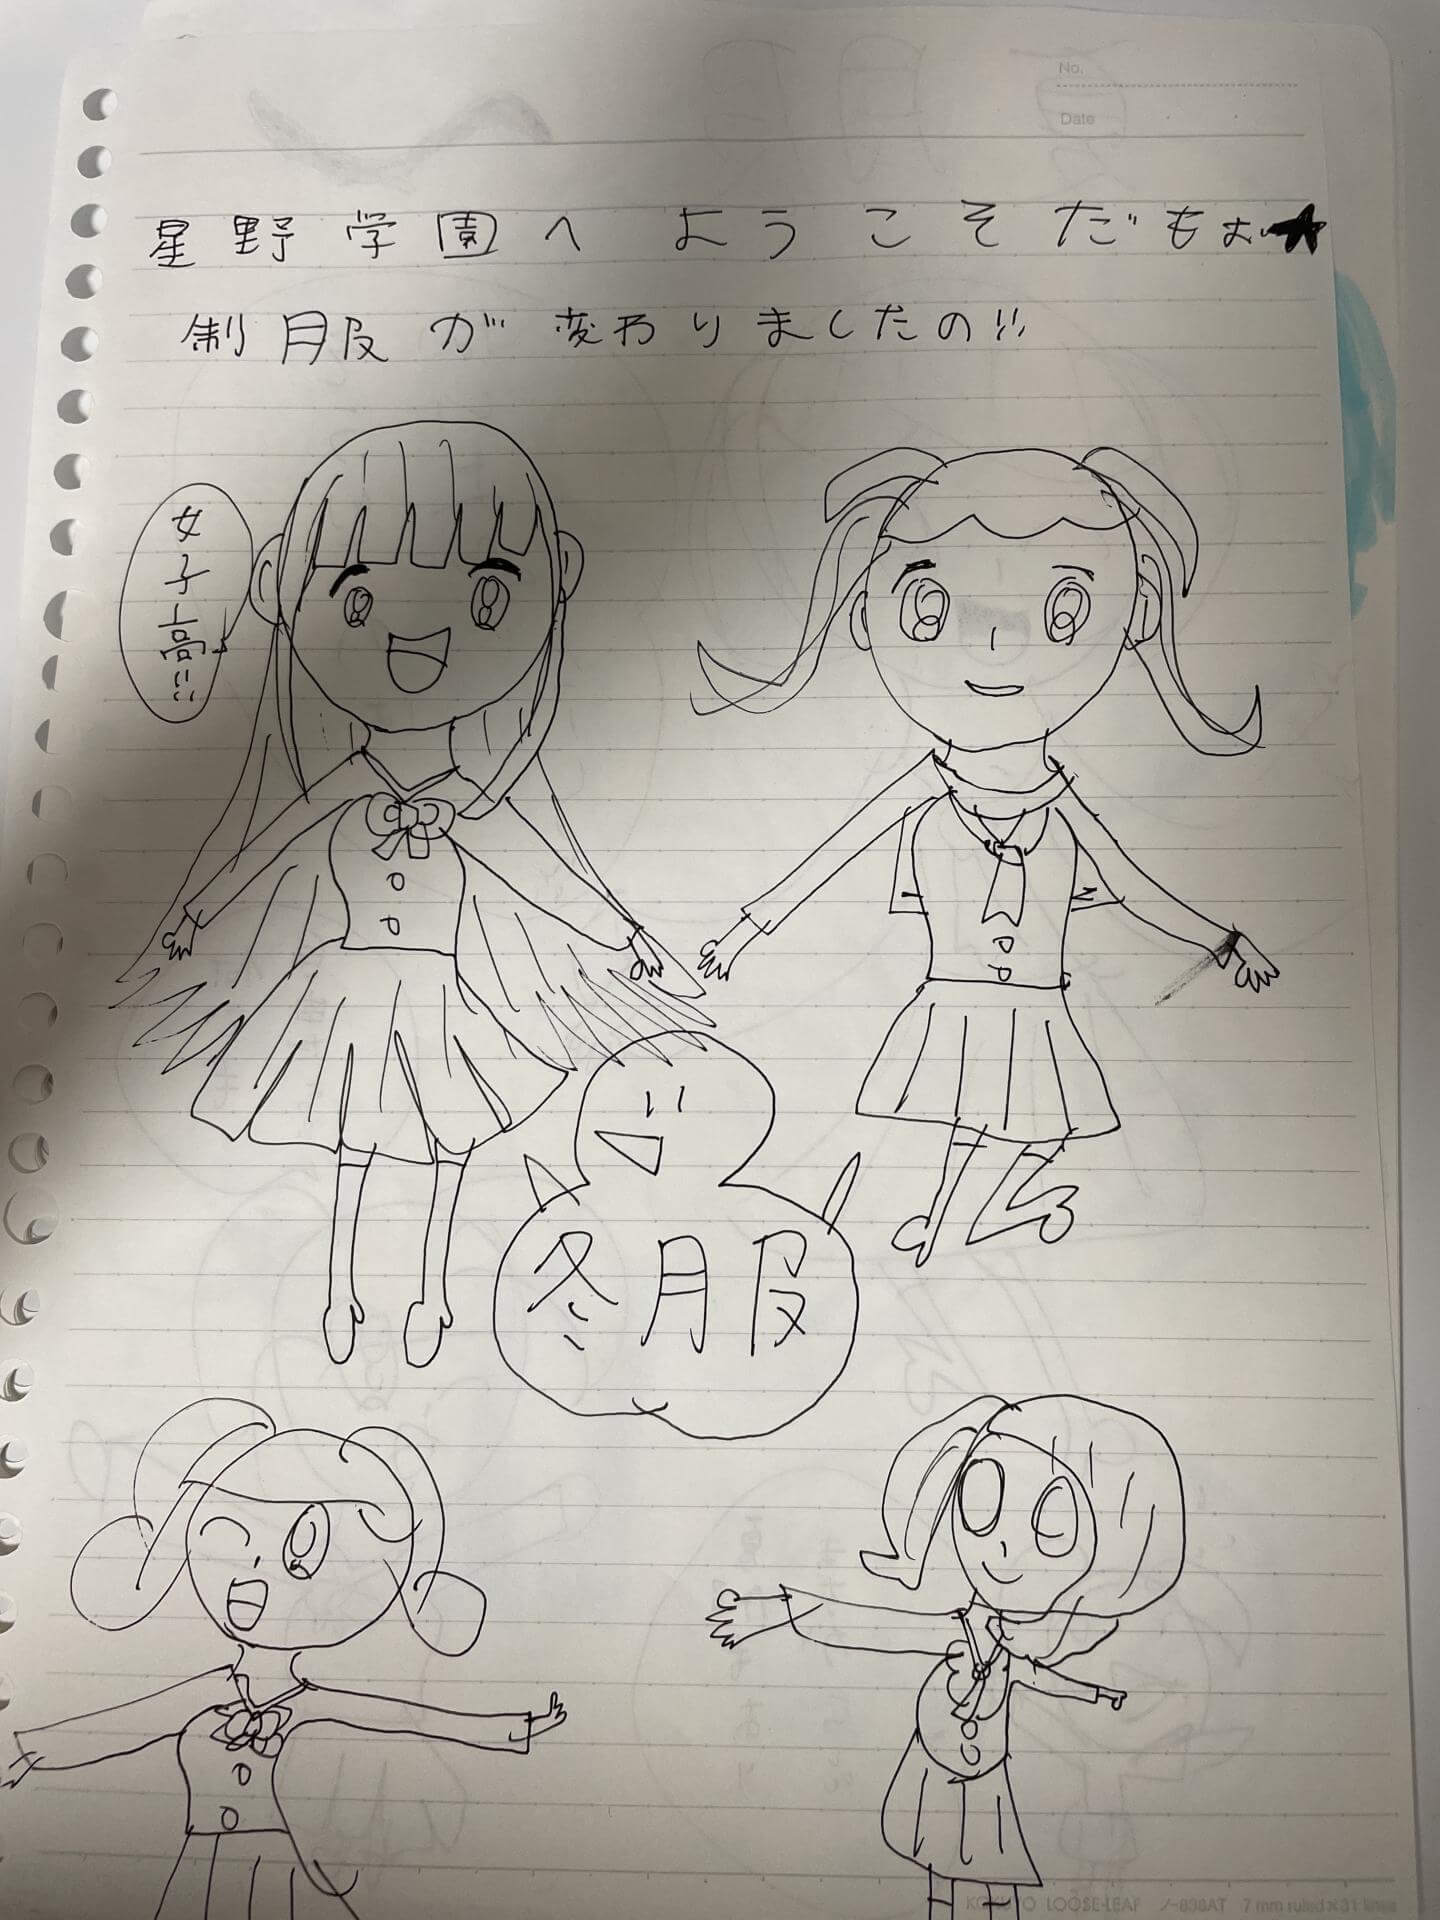 No.
Date
星野学園へようこそだもぉ★
制服が変わりましたの!!
女子高!!
冬服
KOKUYO LOOSE-LEAF ノ-836AT 7 mm ruled×31 lines